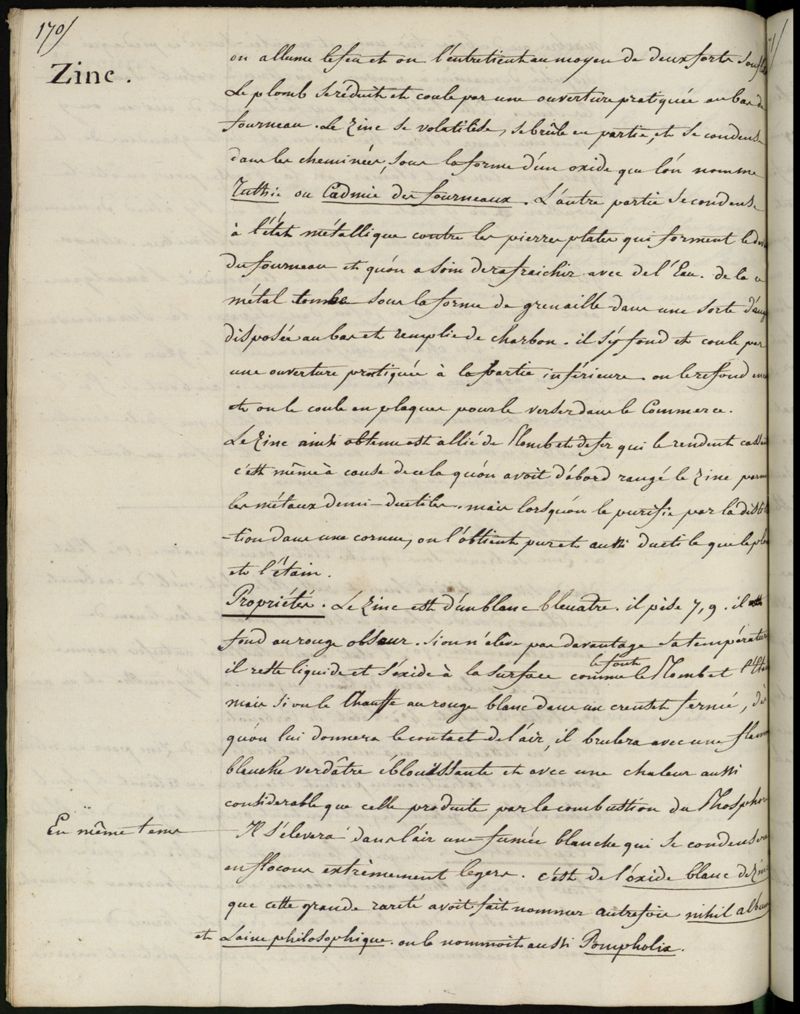 170/
Zinc.
on allume le feu et on l'entretient au moyen de deux forts
Le plomb se réduit et coule par une ouverture pratiquée au bas du
fourneau. Le Zinc se volatilise, se brûle en partie, et se condense
dans les cheminées, sous la forme d'un oxide que l'on nomme
Tuthie ou Cadmie des fourneaux. L'autre partie se condense
à l'état métallique contre les pierres plates qui forment le
du fourneau et qu'on a soin de rafraichir avec de l'Eau. de la ce
métal tombe sous la forme de grenaille dans une sorte
disposée au bas et remplie de charbon. il s'y fond et coule par
une ouverture pratiquée à la partie inférieure. on le refond
et on le coule en plaques pour le verser dans le Commerce.
Le Zinc ainsi obtenu est allié de Plomb et de fer qui le rendent
c'est même à cause de cela qu'on avoit d'abord rangé le Zinc parmi
les métaux demi-ductiles. mais lorsqu'on le purifie par la
-tion dans une cornue, on l'obtient pur et aussi ductile que le
et l'étain.
Propriétés. Le Zinc est d'un blanc bleuatre. il pèse 7,9. il
fond au rouge obscur. si on n'élève pas davantage sa température
il reste liquide et s'oxide à la surface comme le font le Plomb et
mais si on le Chauffe au rouge blanc dans un creuset fermé, dès
qu'on lui donnera le contact de l'air, il brulera avec une flamme
blanche verdâtre éblouissante et avec une chaleur aussi
considerable que celle produite par la combustion du Phosphore
En même tems
Il s'élevera dans l'air une fumée blanche qui se condensera
en flocons extrèmement legers. c'est de l'oxide blanc de Zinc
que cette grande rareté avoit fait nommer autrefois nihil album
et Laine philosophique. on le nommoit aussi Pompholix.